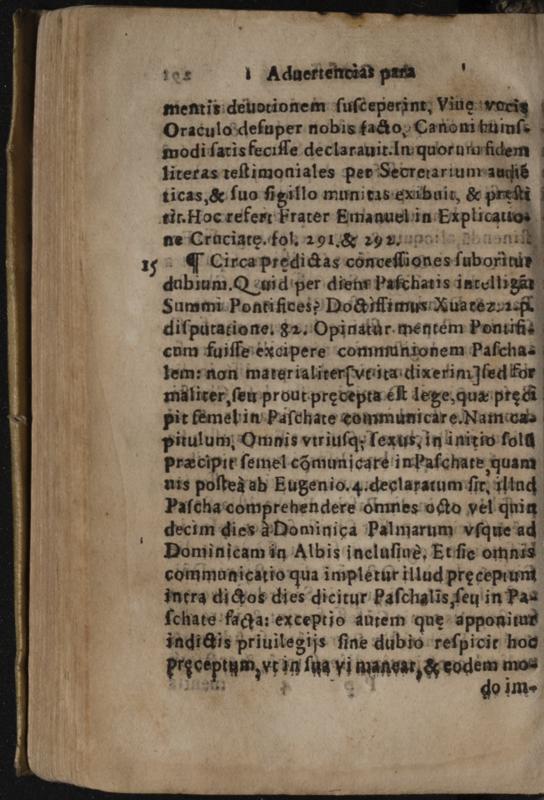 Aduertencias para
mentis deuotionem susceperint, Viuę vocis
Oraculo desuper nobis facto, Canoni huius-
modi satisfecisse declarauit. In quorum fidem
literas testimoniales per Secretarium authē
ticas, & suo sigillo munitas exibuit, & pręsti
tit. Hoc refert Frater Emanuel in Explicatio-
ne Cruciatę. fol. 291. & 292.
15 ¶ Circa prędictas concessiones suboritur
dubium. Quid per diem Paschatis intelligāt
Summi Pontifices? Doctissimus Xuarez. 2. p.
disputatione. 82. Opinatur mentem Pontifi-
cum fuisse excipere communionem Pascha-
lem: non materialiter [vt ita dixerim] sed for
maliter, seu prout pręcepta est lege, quæ pręci
pit semel in Paschate communicare. Nam ca-
pitulum, Omnis vtriusq; sexus, in initio solū
præcipit semel cōmunicare in Paschate, quam
uis posteà ab Eugenio. 4. declaratum sit, illud
Pascha comprehendere omnes octo vel quin
decim dies à Dominica Palmarum vsque ad
Dominicam in Albis inclusiuè. Et sic omnis
communicatio qua impletur illud pręceptum
intra dictos dies dicitur Paschalis, seu in Pa-
schate facta: exceptio autem quę apponitur
indictis priuilegijs sine dubio respicit hoc
pręceptum, vt in sua vi maneat, & eodem mo-
do im-